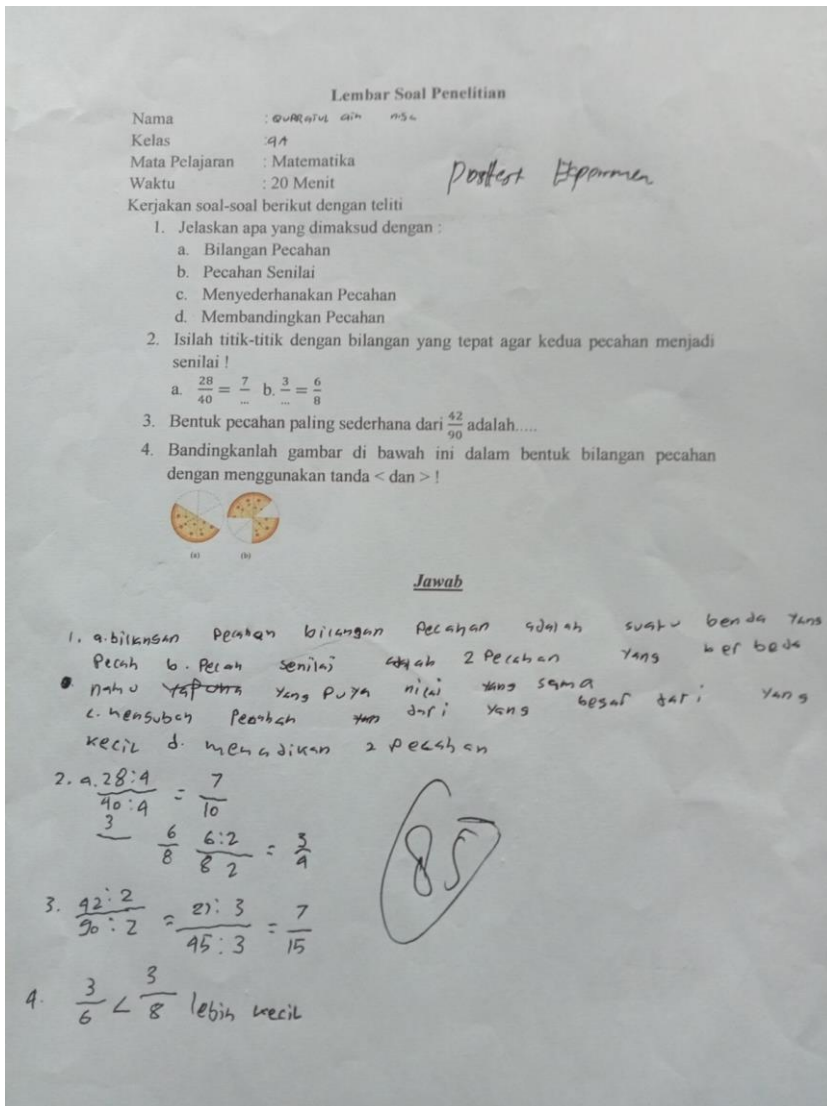 Lembar Soal Penelitian
Nama : QURRATUL ain nsc
Kelas :4A
Mata Pelajaran : Matematika
Waktu : 20 Menit
Posttest
Kerjakan soal-soal berikut dengan teliti
1. Jelaskan apa yang dimaksud dengan :
a. Bilangan Pecahan
b. Pecahan Senilai
c. Menyederhanakan Pecahan
d. Membandingkan Pecahan
2. Isilah titik-titik dengan bilangan yang tepat agar kedua pecahan menjadi
senilai !
a. 28/40 = 7/... b. 3/... = 6/8
3. Bentuk pecahan paling sederhana dari 42/90 adalah.....
4. Bandingkanlah gambar di bawah ini dalam bentuk bilangan pecahan
dengan menggunakan tanda < dan > !
(a) (b)
Jawab
1. a. bilangan Pecahan bilangan Pecahan adalah suatu benda yang
Pecah b. Pecah senilai adalah 2 Pecahan yang berbeda
yang puya nilai yang sama
c. Pecahan dari yang besar dari yang
kecil d. 2 Pecahan
2. a. 28:4/40:4 = 7/10
3/ 6/8 6:2/8 2 = 3/4
3. 42:2/90:2 = 21:3/45:3 = 7/15
4. 3/6 < 3/8 lebih kecil
85